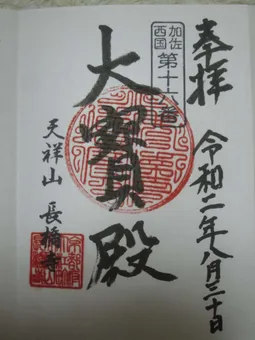 奉拝
令和二年八月三十日
加佐
西国
第十六番
大寶殿
天祥山 長橋寺